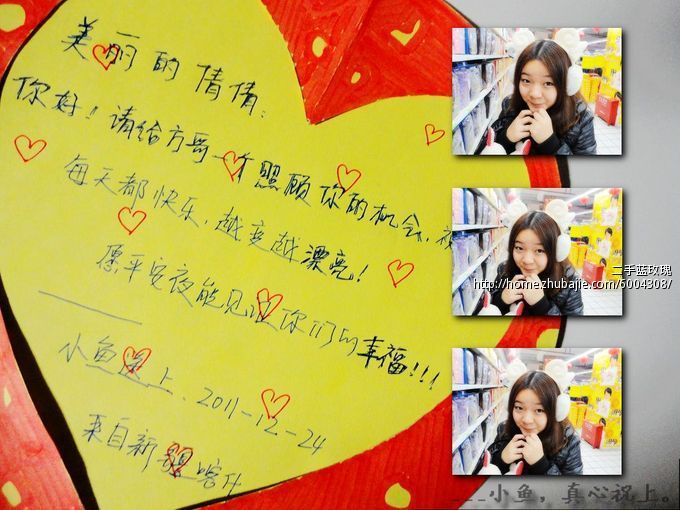 美丽的倩倩：
你好！请给方哥一个照顾你的机会，祝
每天都快乐，越变越漂亮！
愿平安夜能见证你们的幸福！！！
小鱼送上、2011-12-24
来自新疆喀什
二手蓝玫瑰
http://homezhubajie.com/6004308/
___小鱼，真心祝上。